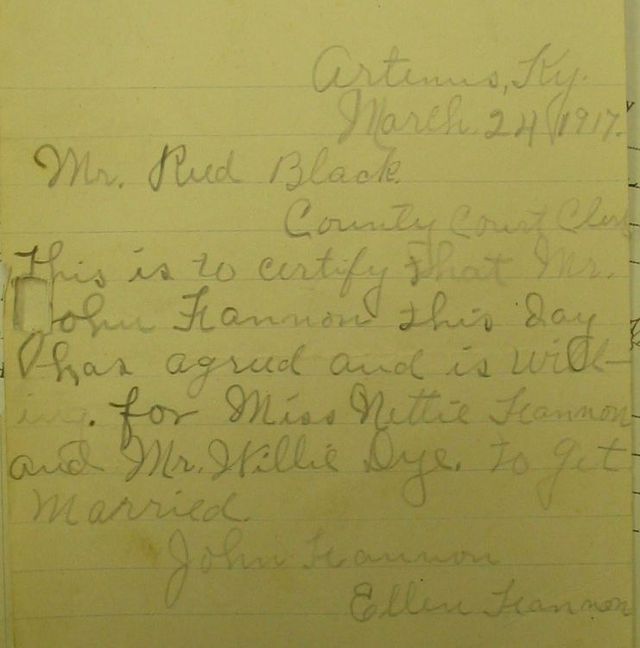 Artemus, Ky.
March 24, 1917.
Mr. Reed Black.
County Court Clerk
This is to certify that Mr.
John Hannon this day
has agreed and is will-
ing. for Miss Nettie Hannon
and Mr. Willie Dye. to get
Married.
John Hannon
Ellen Hannon